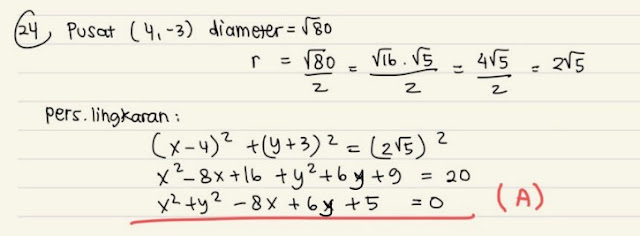 24 Pusat (4,-3) diameter = √80
r = √80/2 = √16 . √5/2 = 4√5/2 = 2√5
Pers. lingkaran :
(x-4)² + (y+3)² = (2√5)²
x² - 8x + 16 + y² + 6y + 9 = 20
x² + y² - 8x + 6y + 5 = 0 (A)